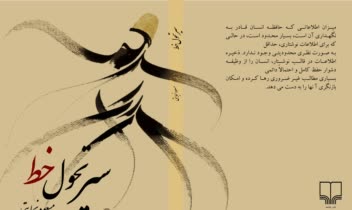 میزان اطلاعاتی که حافظه انسان قادر به
نگهداری آن است، بسیار محدود است، در حالی
که برای اطلاعات نوشتاری، حداقل
به صورت نظری محدودیتی وجود ندارد. ذخیره
اطلاعات در قالب نوشتار، انسان را از وظیفه
دشوار حفظ کامل و احتمالاً دائمی
بسیاری مطالب غیر ضروری رها کرده و امکان
بازنگری آنها را به دست می دهد.
سیر تحول خط
سیر تحول
خط